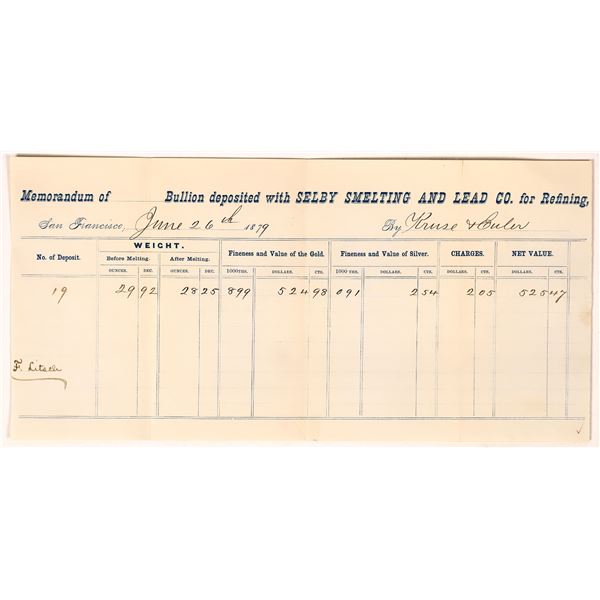 Memorandum of Bullion deposited with SELBY SMELTING AND LEAD CO. for Refining,
San Francisco, June 26th 1879 By Kruse & Euler
No. of Deposit. WEIGHT. Fineness and Value of the Gold. Fineness and Value of Silver. CHARGES. NET VALUE.
Before Melting. After Melting.
OUNCES. DEC. OUNCES. DEC. 1000THS. DOLLARS. CTS. 1000 THS. DOLLARS. CTS. DOLLARS. CTS. DOLLARS. CTS.
19 29 92 28 25 899 524 98 091 2 54 2 05 525 47
F.